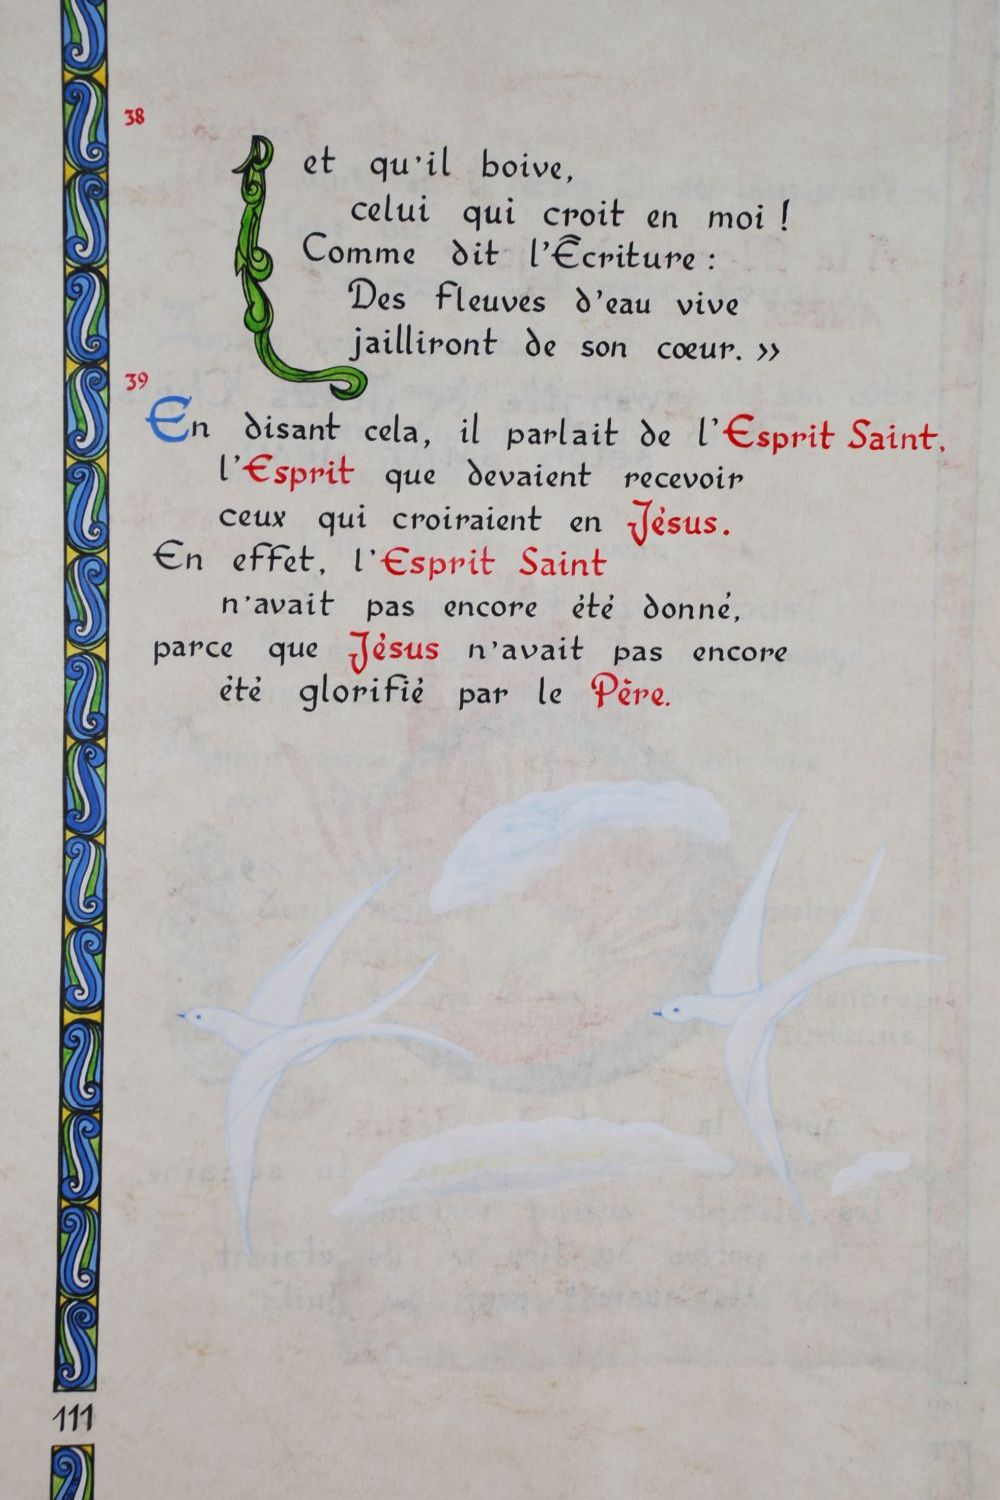 38
et qu'il boive,
celui qui croit en moi !
Comme dit l'Écriture :
Des fleuves d'eau vive
jailliront de son cœur. »
39
En disant cela, il parlait de l'Esprit Saint,
l'Esprit que devaient recevoir
ceux qui croiraient en Jésus.
En effet, l'Esprit Saint
n'avait pas encore été donné,
parce que Jésus n'avait pas encore
été glorifié par le Père.
111